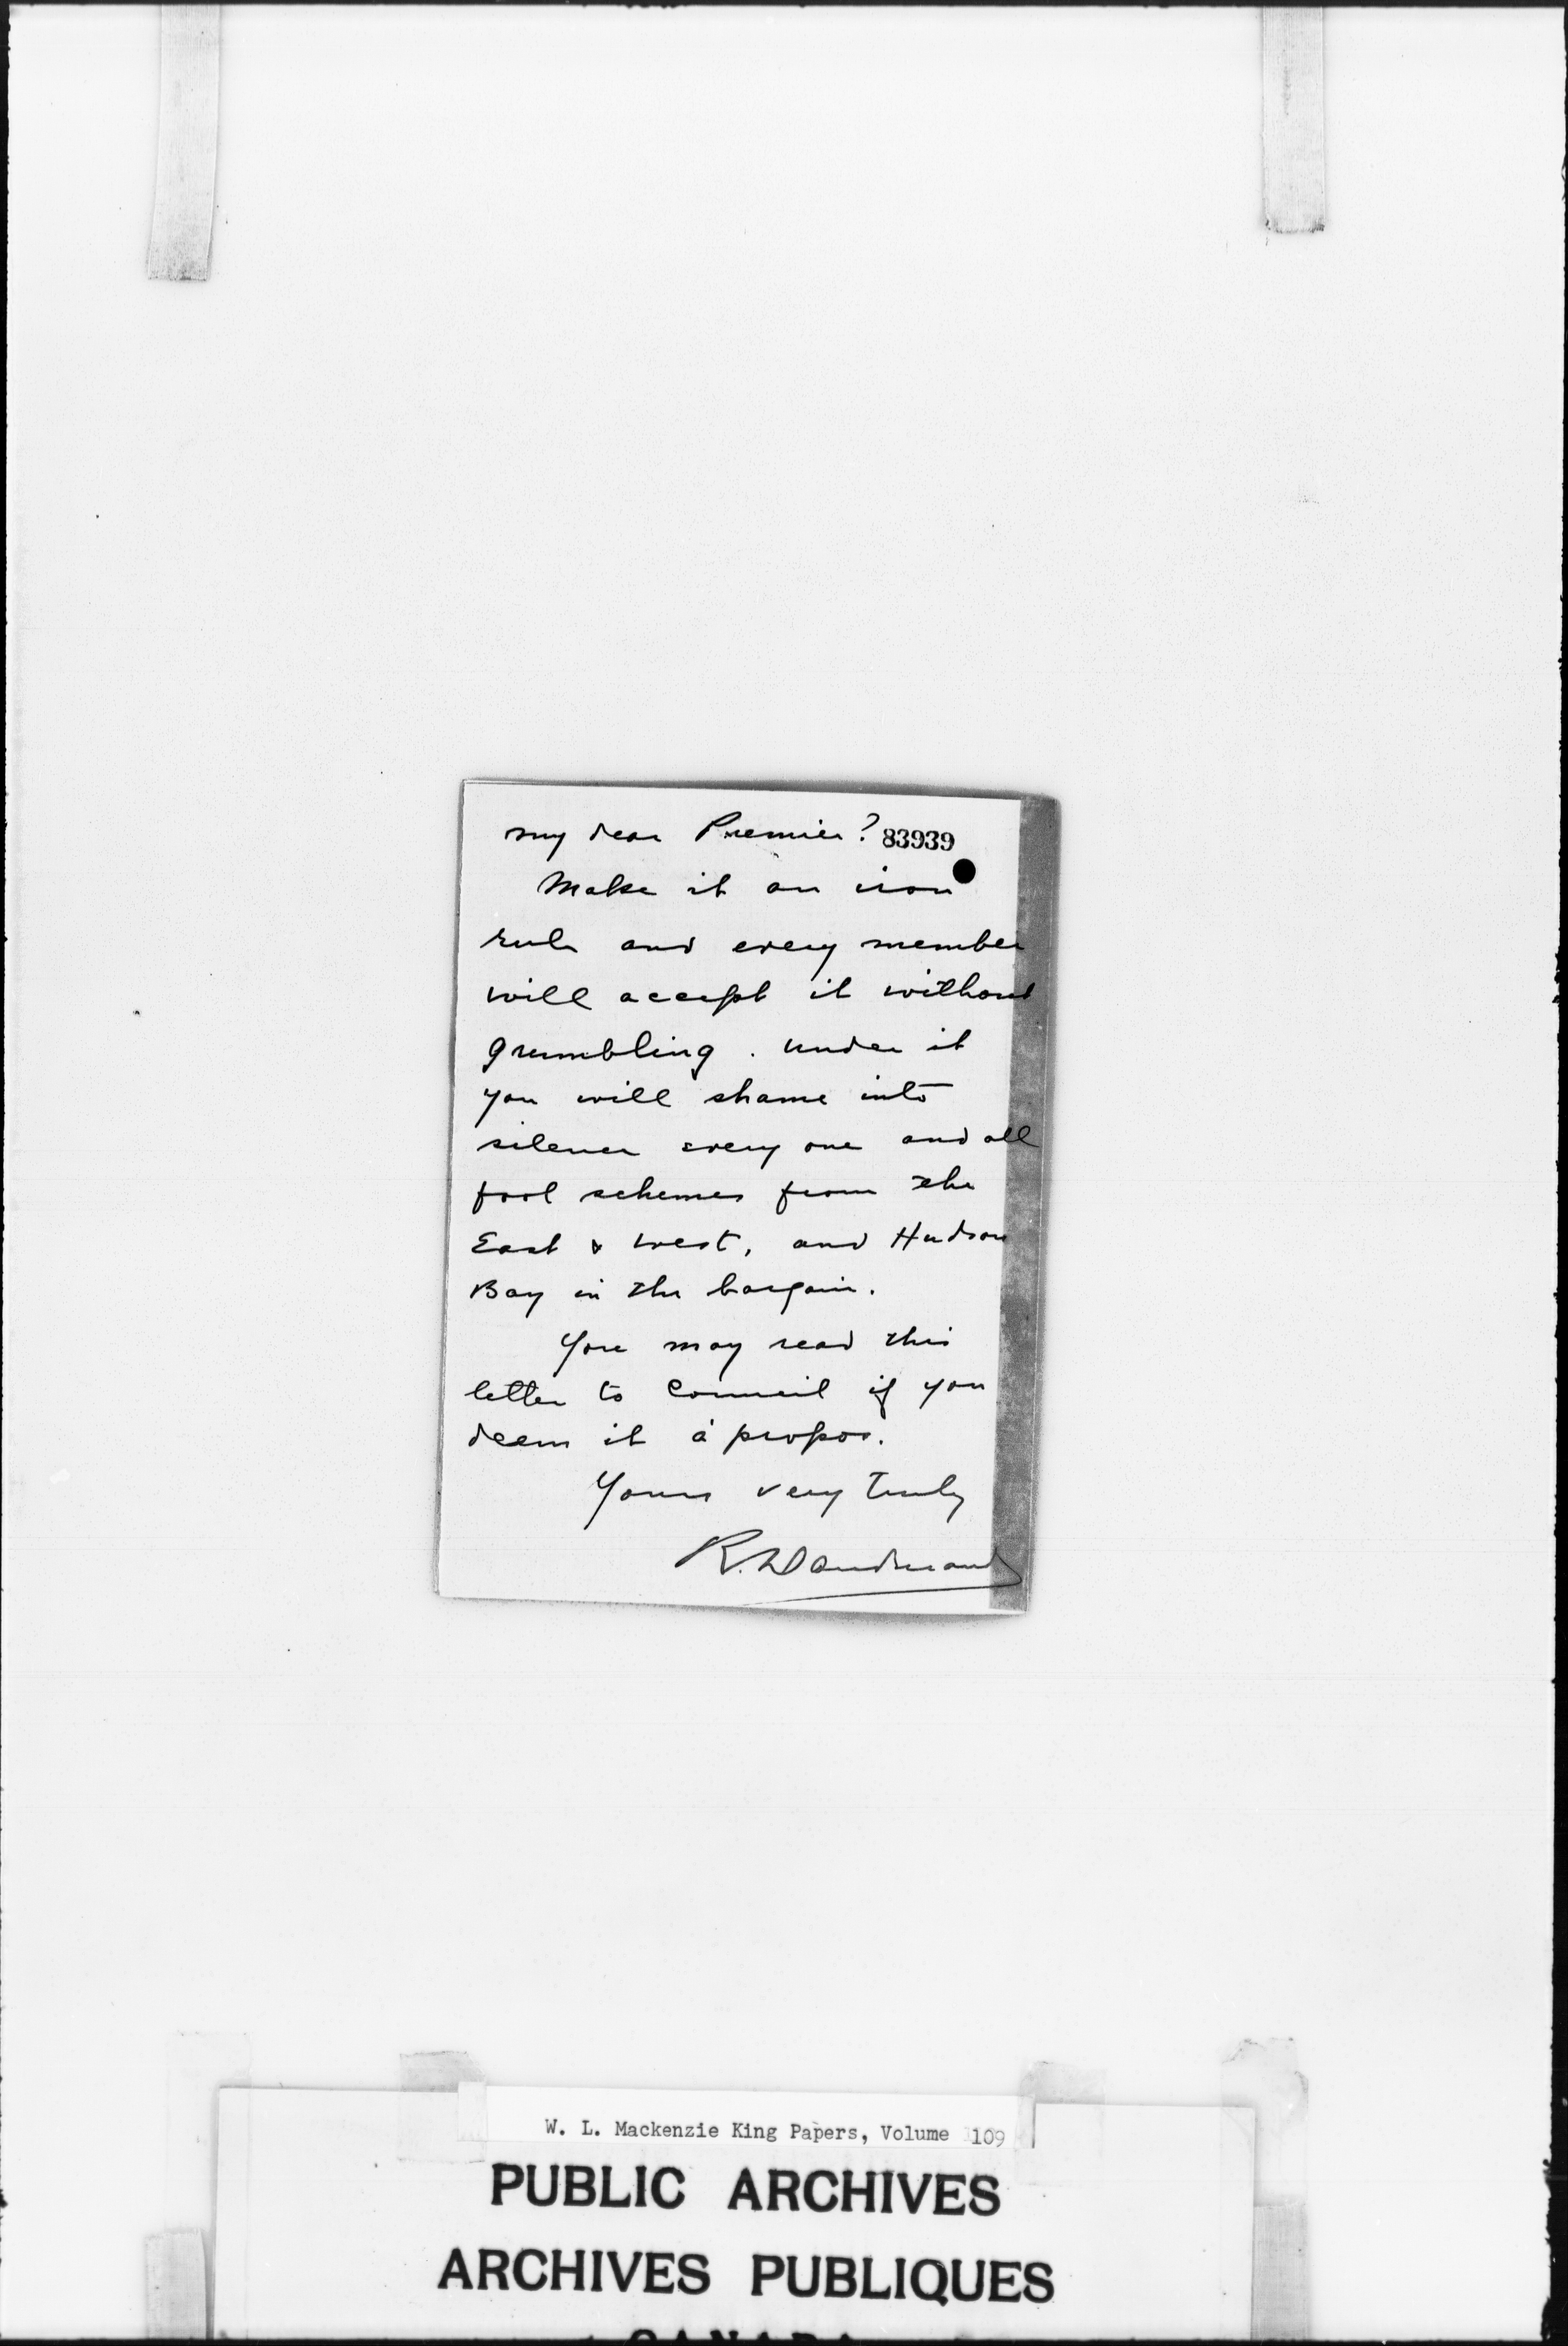 my dear Premier? 83939
Make it an iron
rule and every member
will accept it without
grumbling. under it
you will shame into
silence every one and all
fool schemes from the
East & West, and Hudson
Bay in the bargain.
You may read this
letter to Council if you
deem it à propos.
Yours very truly
R. Dandurand
W. L. Mackenzie King Papers, Volume 109
PUBLIC ARCHIVES
ARCHIVES PUBLIQUES
CANADA